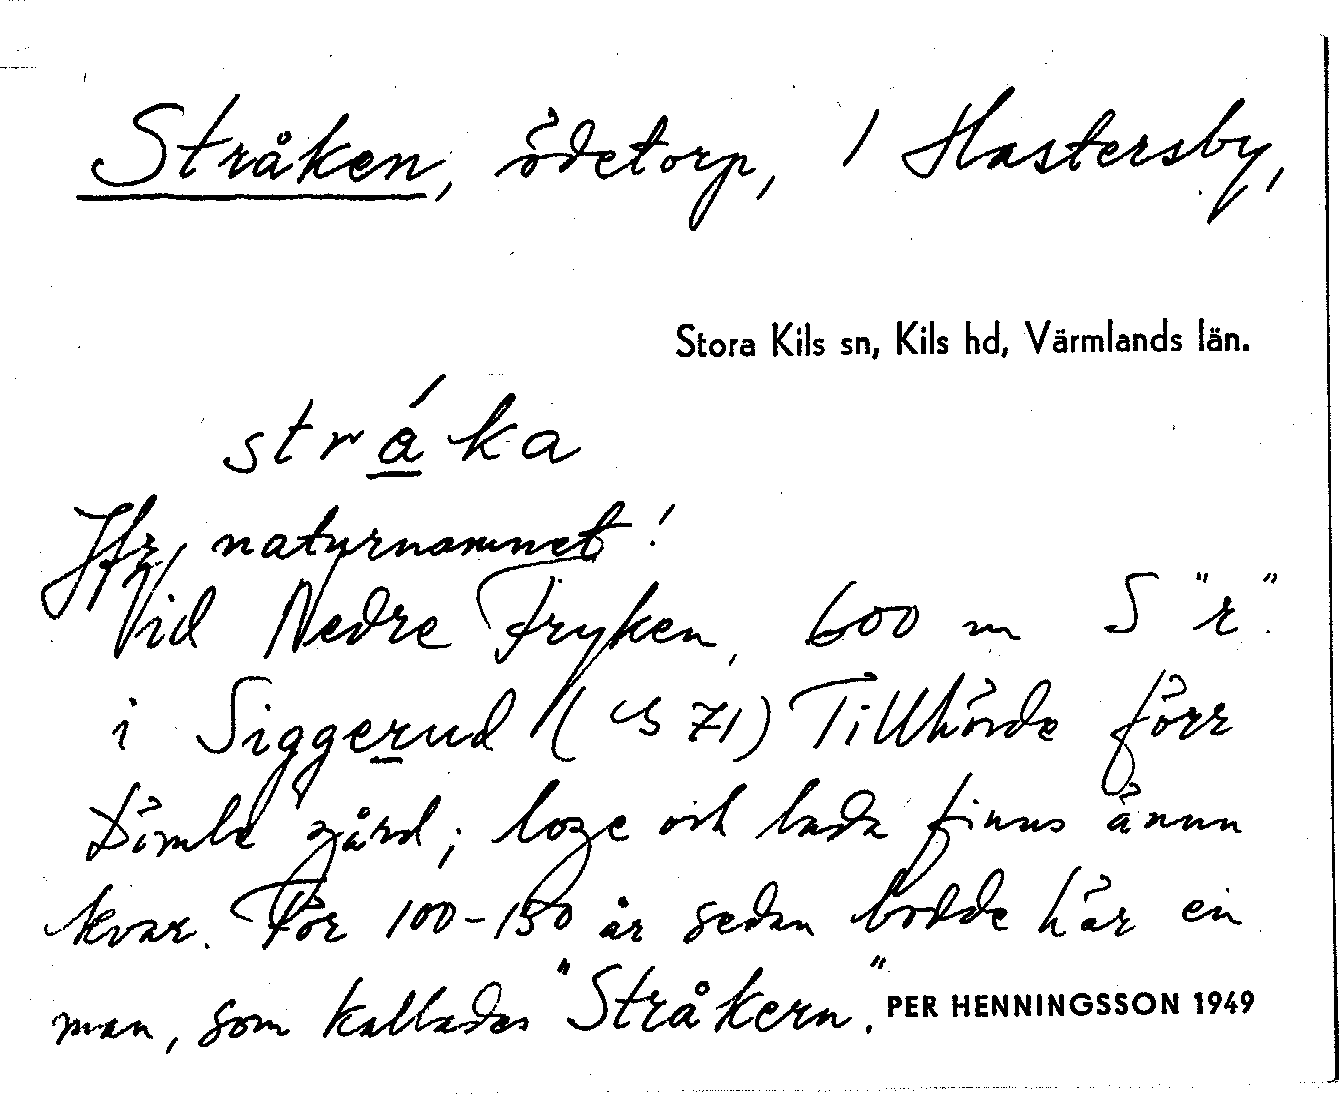 Stråken, ödetorp, / Hastersby,
Stora Kils sn, Kils hd, Värmlands län.
stráka
Jfr naturnamnet!
Vid Nedre Fryken, 600 m S "r"
i Siggerud (S 71) Tillhörde förr
Dömle gård; loge och lada finns ännu
kvar. För 100-150 år sedan bodde här en
man, som kallades "Stråkern".
PER HENNINGSSON 1949